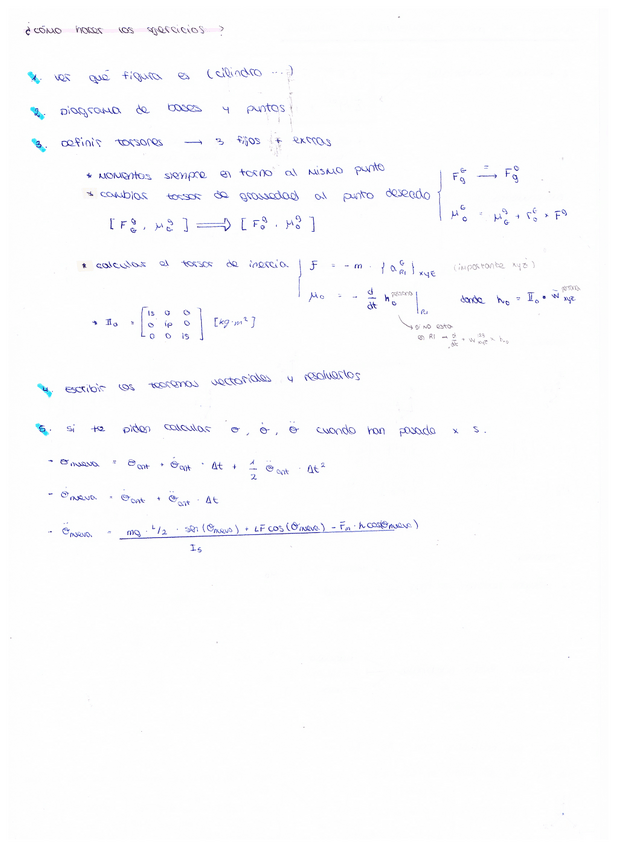 ¿cómo hacer los ejercicios?
1. ver qué figura es (cilindro ...)
2. Diagrama de bases y puntos
3. Definir torsores → 3 fijos + extras
* Momentos siempre en torno al mismo punto
* cambiar torsor de gravedad al punto deseado
F_g^G →(=) F_g^O
[F_G^g, μ_G^g] ⟹ [F_O^g, μ_O^g]
μ_O^G = μ_G^g + r_O^G × F^g
* calcular el torsor de inercia
F = -m · {a_RI^G}_xyz (importante xyz)
μ_O = - d/dt h_O |_RI donde h_O = II_O • w_xyz
si no está
* II_O = [Is 0 0
0 Ip 0
0 0 Is] [kg·m²]
4. escribir los teoremas vectoriales y resolverlos
5. si te piden calcular θ, θ̇, θ̈ cuando han pasado x s.
- θnueva = θant + θ̇ant · Δt + 1/2 θ̈ant · Δt²
- θ̇nueva = θ̇ant + θ̈ant · Δt
- θ̈nueva = (mg · L/2 · sen(θnueva) + LF cos(θnueva) - Fm · h cosθnueva) / Is